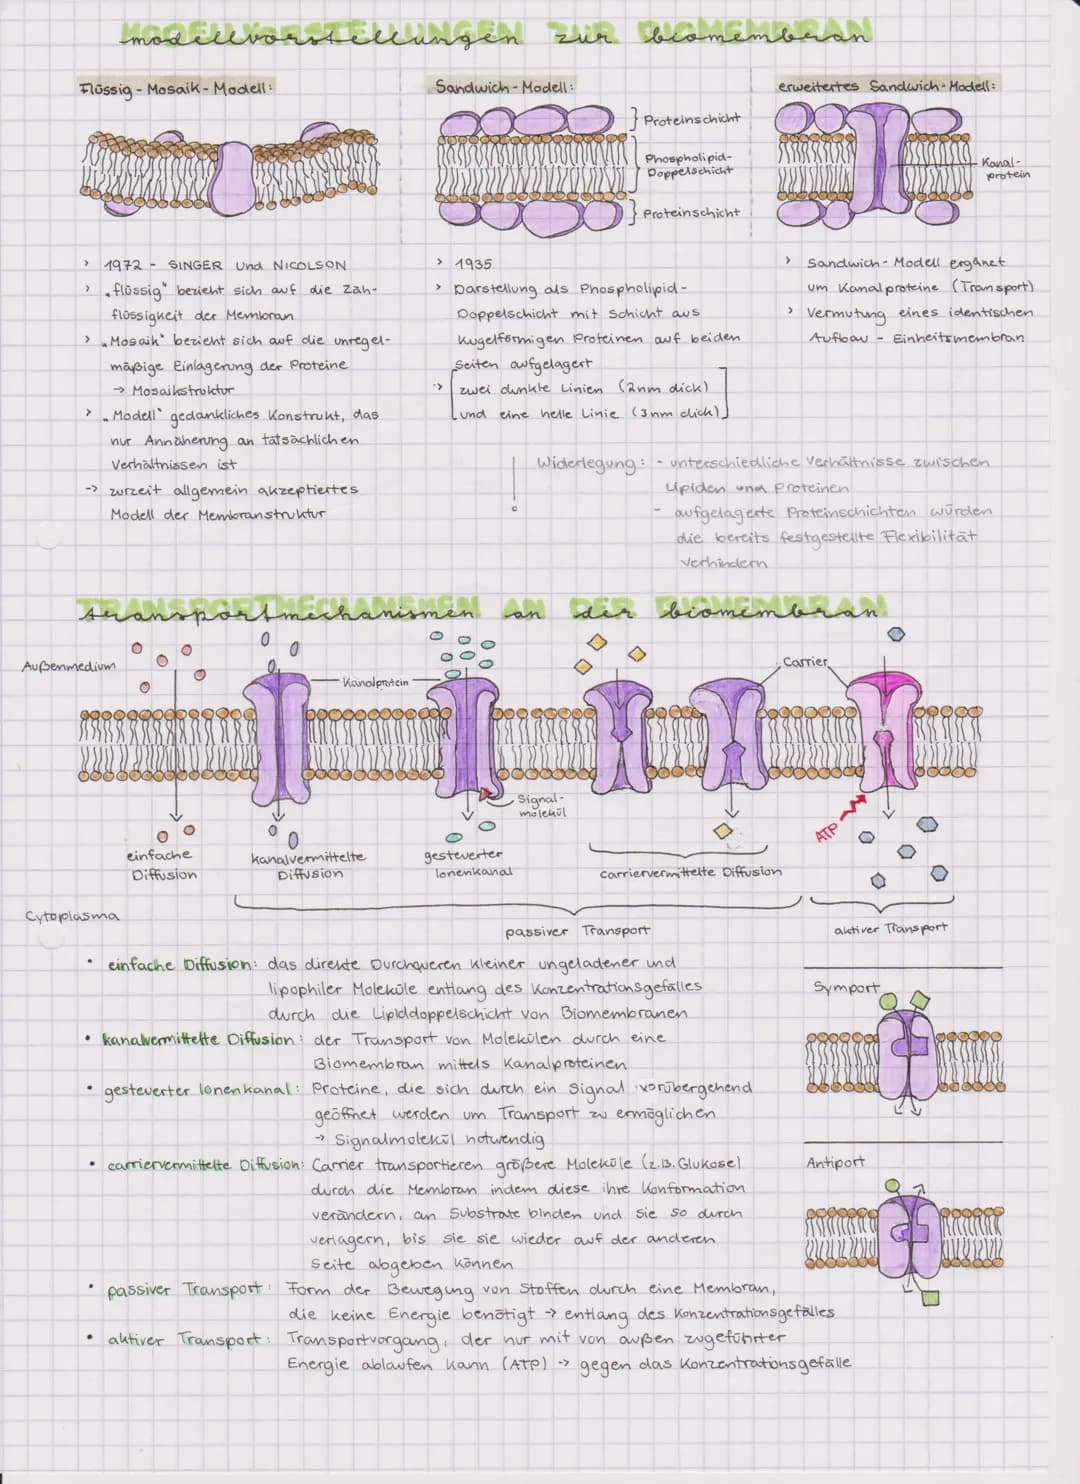 modellvorstellungen zur biomembran
Flüssig-Mosaik-Modell:
Sandwich-Modell:
erweitertes Sandwich-Modell:
Proteinschicht
Phospholipid-
Doppelschicht
Proteinschicht
Kanal-
protein
> 1972 - SINGER und NICOLSON
> „flüssig" bezieht sich auf die Zäh-
flüssigkeit der Membran
> „Mosaik" bezieht sich auf die unregel-
mäßige Einlagerung der Proteine
→ Mosaikstruktur
> „Modell" gedankliches Konstrukt, das
nur Annäherung an tatsächlichen
Verhältnissen ist
-> zurzeit allgemein akzeptiertes
Modell der Membranstruktur
> 1935
> Darstellung als Phospholipid-
Doppelschicht mit Schicht aus
kugelförmigen Proteinen auf beiden
Seiten aufgelagert
-> zwei dunkle Linien (2nm dick)
und eine helle Linie (3nm dick)
> Sandwich-Modell ergänzt
um Kanalproteine (Transport)
> Vermutung eines identischen
Aufbau - Einheitsmembran
Widerlegung: - unterschiedliche Verhältnisse zwischen
Lipiden und Proteinen
- aufgelagerte Proteinschichten würden
die bereits festgestellte Flexibilität
verhindern
TRANSPORTMECHANISMEN AN DER BIOMEMBRAN
transportmechanismen an der biomembran
Außenmedium
Kanalprotein
Carrier
Signal-
molekül
ATP
einfache
Diffusion
kanalvermittelte
Diffusion
gesteuerter
Ionenkanal
carriervermittelte Diffusion
Cytoplasma
passiver Transport
aktiver Transport
• einfache Diffusion: das direkte Durchqueren kleiner ungeladener und
lipophiler Moleküle entlang des Konzentrationsgefälles
durch die Lipiddoppelschicht von Biomembranen
• kanalvermittelte Diffusion: der Transport von Molekülen durch eine
Biomembran mittels Kanalproteinen
• gesteuerter Ionenkanal: Proteine, die sich durch ein Signal vorübergehend
geöffnet werden um Transport zu ermöglichen
→ Signalmolekül notwendig
• carriervermittelte Diffusion: Carrier transportieren größere Moleküle (z.B. Glukose)
durch die Membran indem diese ihre Konformation
verändern, an Substrate binden und sie so durch
verlagern, bis sie sie wieder auf der anderen
Seite abgeben können
• passiver Transport: Form der Bewegung von Stoffen durch eine Membran,
die keine Energie benötigt -> entlang des Konzentrationsgefälles
• aktiver Transport: Transportvorgang, der nur mit von außen zugeführter
Energie ablaufen kann (ATP) -> gegen das Konzentrationsgefälle
Symport
Antiport